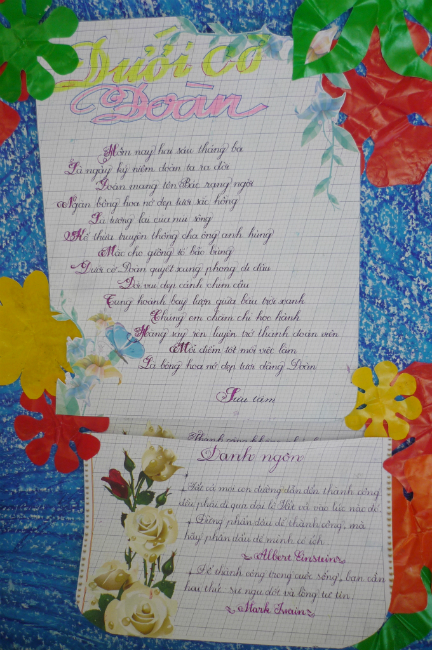 Dưới cờ
Đoàn
Hôm nay hai sáu tháng ba
Là ngày kỷ niệm đoàn ta ra đời
Đoàn mang tên Bác rạng ngời
Ngàn bông hoa nở đẹp tươi sắc hồng
Là tương lai của núi sông
Kế thừa truyền thống cha ông anh hùng
Mặc cho giông tố bão bùng
Dưới cờ Đoàn quyết xung phong đi đầu
Lời vui đẹp cánh chim câu
Tung hoành bay lượn giữa bầu trời xanh
Chúng em chăm chỉ học hành
Hăng say rèn luyện trở thành đoàn viên
Mỗi điểm tốt mỗi việc làm
Là bông hoa nở đẹp tươi dâng Đoàn
Sưu tầm
Thành công không phải
Danh ngôn
+ Tất cả mọi con đường dẫn đến thành công
đều phải đi qua dấu lơ Tất cả vào lúc nào đó.
+ Đừng phấn đấu để thành công, mà
hãy phấn đấu để mình có ích.
Albert Einstein
+ Để thành công trong cuộc sống, bạn cần
hay thức: sự ngu dốt và lòng tự tin.
Mark Twain